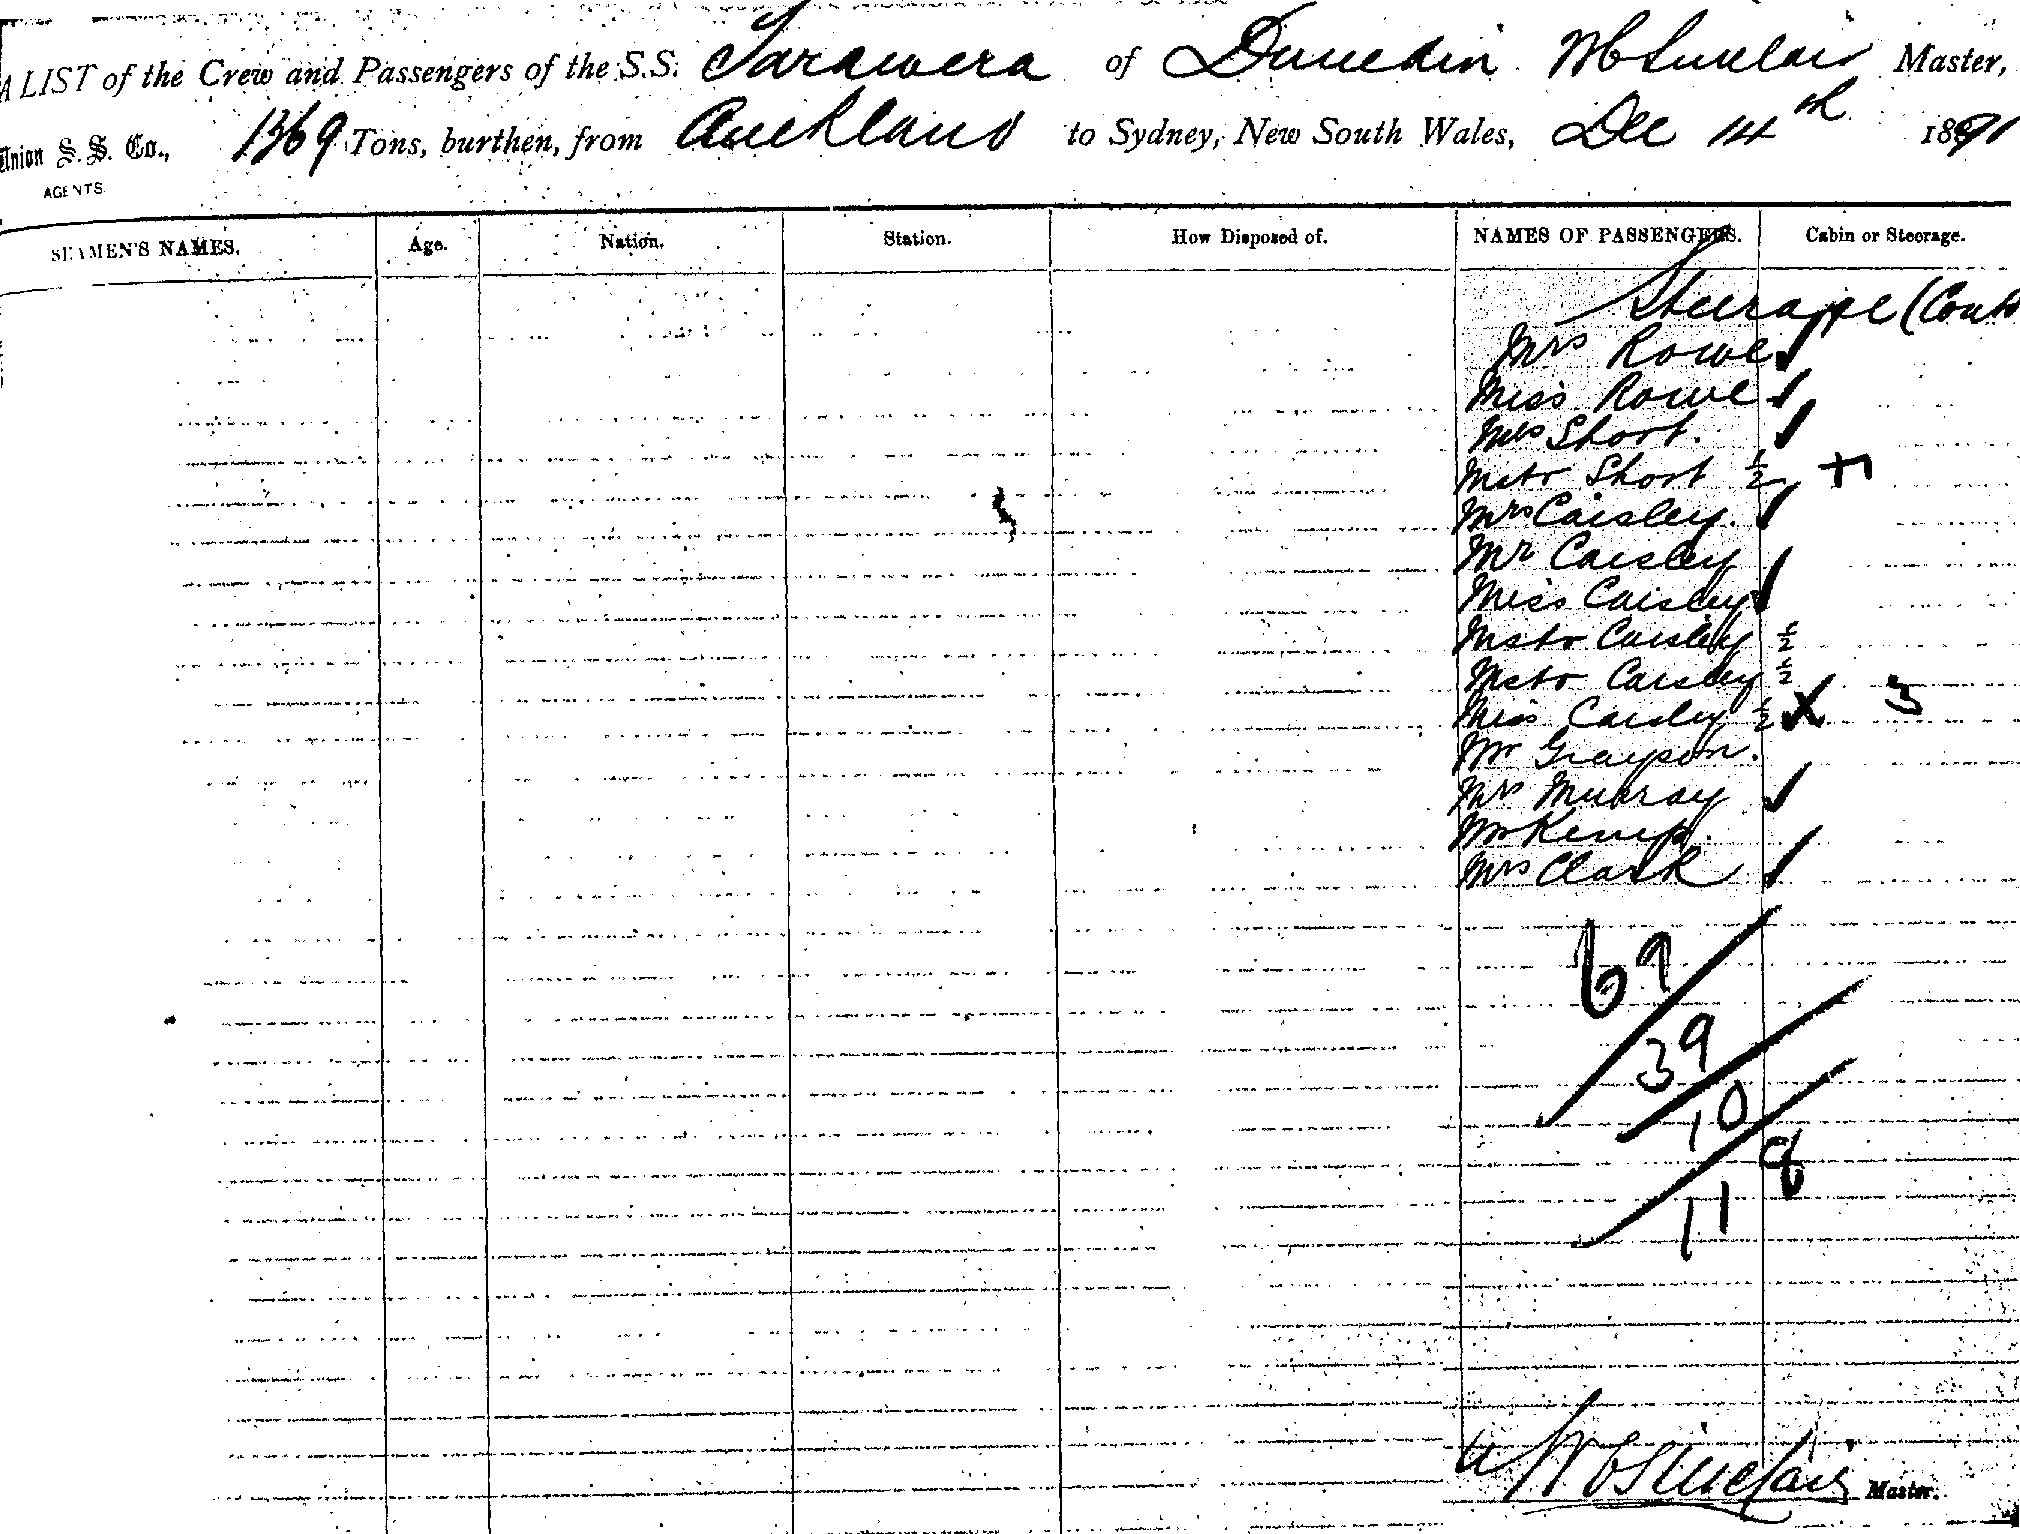 A LIST of the Crew and Passengers of the S.S. Tarawera of Dunedin W C Sinclair Master,
Union S. S. Co., AGENTS. 1369 Tons, burthen, from Auckland to Sydney, New South Wales, Dec 14th 1891
SEAMEN'S NAMES. Age. Nation. Station. How Disposed of. NAMES OF PASSENGERS. Cabin or Steerage.
Steerage (Contd
Mrs Rowe ✓
Miss Rowe ✓
Mrs Short. ✓
Mstr Short 1/2
Mrs Caisley. ✓
Mr Caisley
Miss Caisley ✓
Mstr Caisley 1/2
Mstr Caisley 1/2
Miss Caisley 1/2 X 3
Mr Grayson.
Mrs Murray ✓
Mr Kemp.
Mrs Clark ✓
69
39
10
11 8
W C Sinclair Master.